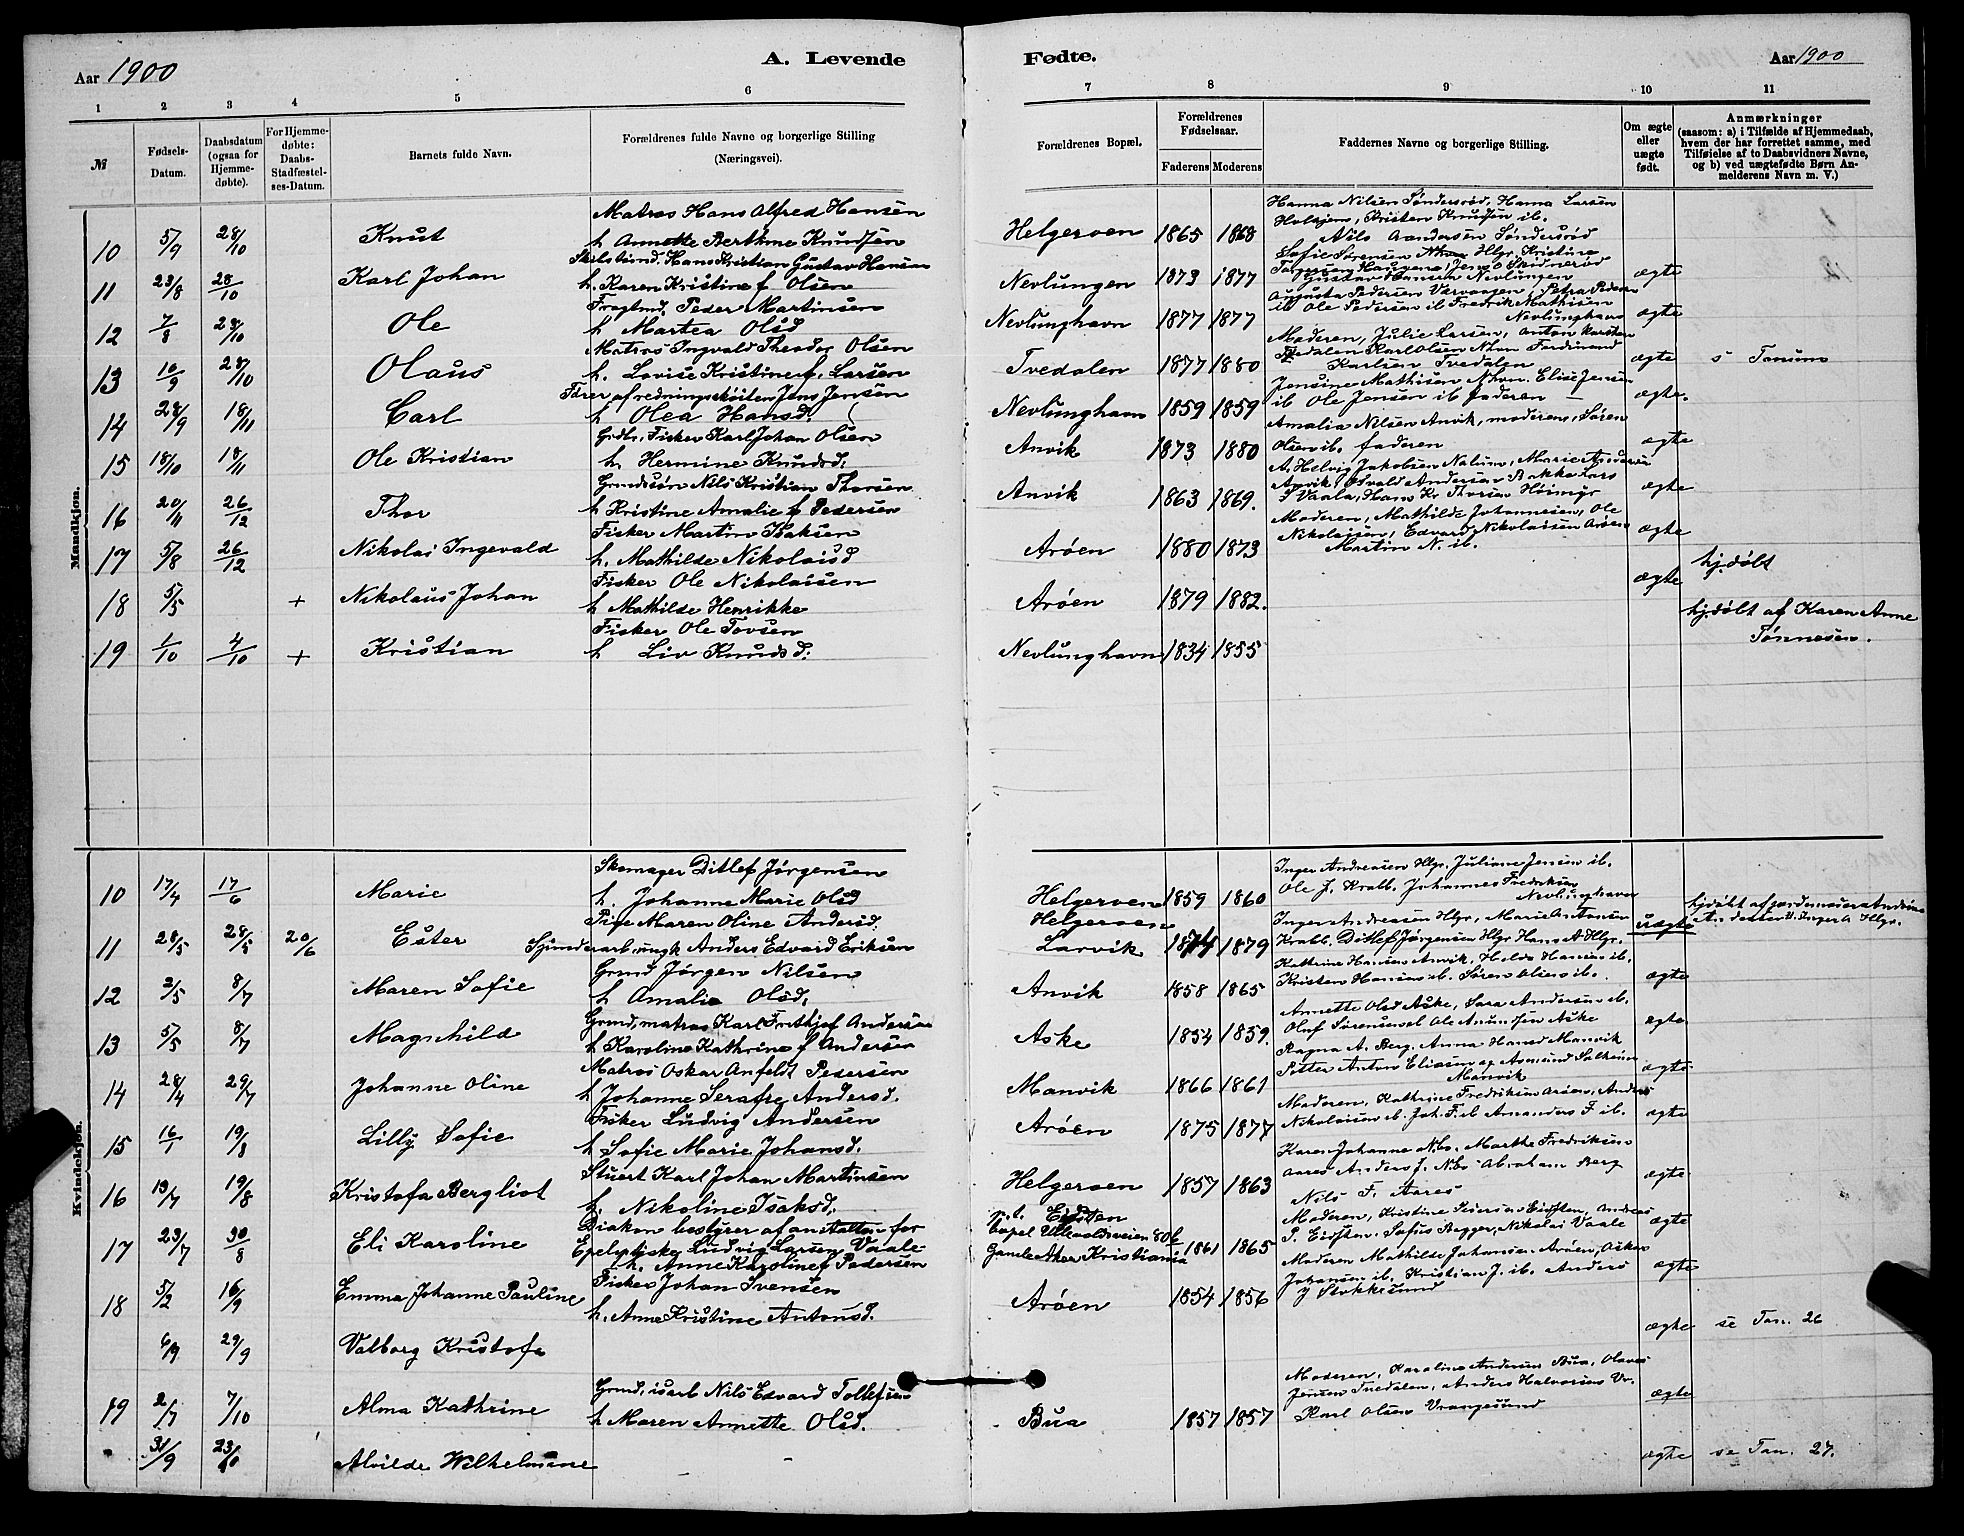 Aar 1900
A. Levende
Fødte.
Aar 1900
1 2 3 4 5 6 7 8 9 10 11
№
Fødsels-Datum.
Daabsdatum (ogsaa for Hjemme-døbte).
For Hjemme-døbte: Daabs-Stadfæstel-ses-Datum.
Barnets fulde Navn.
Forældrenes fulde Navne og borgerlige Stilling (Næringsvei).
Forældrenes Bopæl.
Forældrenes Fødselsaar.
Faderens Moderens
Faddernes Navne og borgerlige Stilling.
Om ægte eller uægte født.
Anmærkninger
(saasom: a) i Tilfælde af Hjemmedaab, hvem der har forrettet samme, med Tilføielse af to Daabsvidners Navne, og b) ved uægtefødte Børn An-melderens Navn m. V.)
Mandkjøn.
10 5/9 28/10 Knut
Matros Hans Alfred Hansen
h. Annette Berthine Knudsen
Helgeroen 1865 1868
Hanna Nilsen Søndersrød, Hanna Larsen
Kristen Knudsen ib.
Nils Andersen Søndersrød
11 23/8 28/10 Karl Johan
Hans Kristian Gustav Hansen
h. Karen Kristine f Olsen
Nevlungen 1873 1877
Sofie Sørensen Hlgr. Kristine
Gustav Hansen Nevlungen
ægte
12 7/8 28/10 Ole
Peder Martinsen
h Martea Olsd
Nevlunghavn 1877 1877
Augusta Pedersen Varvaagen, Petra Pedersen
ib Ole Pedersen ib Fredrik Mathisen
Nevlunghavn
ægte
13 10/9 28/10 Olaus
Matros Ingvald Theodor Olsen
h. Lovise Kristine f. Larsen
Tvedalen 1877 1880
Moderen, Julie Larsen, Anton Karsten
Tvedalen Karl Olsen Nhvn Ferdinand
Karlsen Tvedalen
ægte
s Tanum
14 28/9 18/11 Carl
Fører af redningsskøiten Jens Jensen
h Olea Hansd.
Nevlunghavn 1859 1859
Jensine Mathisen Nhvn. Elise Jensen
ib Ole Jensen ib faderen
ægte.
15 18/10 18/11 Ole Kristian
Grdbr. Fisker Karl Johan Olsen
h. Hermine Knudsd.
Anvik 1873 1880
Amalia Nilsen Anvik, moderen, Søren
Olsen ib. faderen
ægte
16 20/11 26/12 Thor
Grundsørn Nils Kristian Thorsen
h Kristine Amalie f Pedersen
Anvik 1863 1869.
A. Helvig Jakobsen Nalum, Marie Andersen
Anvik, Osvald Andersen Bakke Lars
S Vaala, Hans Kr. Thorsen
ægte
17 5/8 26/12 Nikolai Ingevald
Fisker Martin Isaksen
h. Mathilde Nikolaisd
Arøen 1880 1873
Moderen, Mathilde Johannesen, Ole
Nikolaisen, Edvard Nikolaisen Arøen
Martin N. ib.
ægte
18 5/5 + Nikolaus Johan
Fisker Ole Nikolaisen
h Mathilde Henrikke
Arøen 1879 1882.
ægte
hj.døbt
19 1/10 4/10 + Kristian
Fisker Ole Tovsen
h Liv Knudsd.
Nevlunghavn 1834 1855
hj.døbt af Karen Anne
Tønnesen.
Kvindekjøn.
10 17/4 17/6 Marie
Skomager Ditlef Jørgensen
h. Johanne Marie Olsd
Helgeroen 1859 1860
Inger Andreasen Hlgr. Juliane Jensen ib.
Ole J. Krabb. Johannes Fredriksen
Nevlunghavn
11 28/5 28/5 20/6 Ester
Pige Maren Oline Andersd.
ungk Anders Edvard Eriksen
Helgeroen
Larvik 1874 1879
Inger Andreasen Hlgr, Marie Antonsen
Krabb. Ditlef Jørgensen Hlgr Hans A Hlgr.
uægte
hjdøbt af jordemoder Andrine
Inger A Hlgr.
12 2/5 8/7 Maren Sofie
Grund Jørgen Nilsen
h Amalie Olsd.
Anvik 1858 1865
Kathrine Hansen Anvik, Helda Hansen ib.
Kristen Hansen ib. Søren Olsen ib.
ægte
13 5/5 8/7 Magnhild
Grund, matros Karl Frithjof Andersen
h Karoline Kathrine f Andersen
Aske 1854 1859.
Annette Olsd Aske, Sara Andersen ib.
Oluf Sørensen Ole Amundsen Aske
ægte
14 28/4 29/7 Johanne Oline
Matros Oskar Anfeldt Pedersen
h Johanne Serafie Andersd.
Manvik 1866 1861
Ragna A. Berg. Anna Hansd Manvik
Petter Anton Eliasen og Asmund
Manvik
ægte
15 16/1 19/8 Lilly Sofie
Fisker Ludvig Andersen
h Sofie Marie Johansd.
Arøen 1875 1877
Moderen, Kathrine Fredriksen Arøen, Anders
Nikolaisen ib. Joh. F. ib Amandus F. ib.
ægte
16 13/7 19/8 Kristofa Bergliot
Stuert Karl Johan Martinsen
h. Nikoline Isaksd.
Helgeroen 1857 1863
Karen Johanne Marthe Fredriksen
Aarøs Anders J. Abraham Berg
Nils F. Aarøs
ægte
17 23/7 30/8 Eli Karoline
Diakon bestyrer af anstalten for
Epelyptiske Ludvig Larsen Vaale
h. Anne Karoline f Pedersen
p.t. Eidsten
Ullevoldsveien 80b
Gamle Aker Kristiania 1861 1865
Moderen, Kristine Eidsten, Andreas
P. Eidsten. Sofus Nikolai Vaale
ægte
18 5/2 16/9 Emma Johanne Pauline
Fisker Johan Svensen
h. Anne Kristine Antonsd.
Arøen 1854 1856
Moderen Mathilde Johansen Arøen, Oskar
Johansen ib. Kristian J. ib. Anders
J Stokkesund
ægte
6/9 29/9 Valborg Kristofa
ægte se Tan. 26
19 2/7 7/10 Alma Kathrine
Grund, Nils Edvard Tollefsen
h Maren Annette Olsd.
Bua 1857 1857
Moderen, Karoline Andersen Bua, Olaves
Jensen Tvedalen, Anders Halvorsen
Karl Olsen Vrangesund
ægte
31/9 23/10 Alvilde Wilhelmine
ægte se Tan. 27.